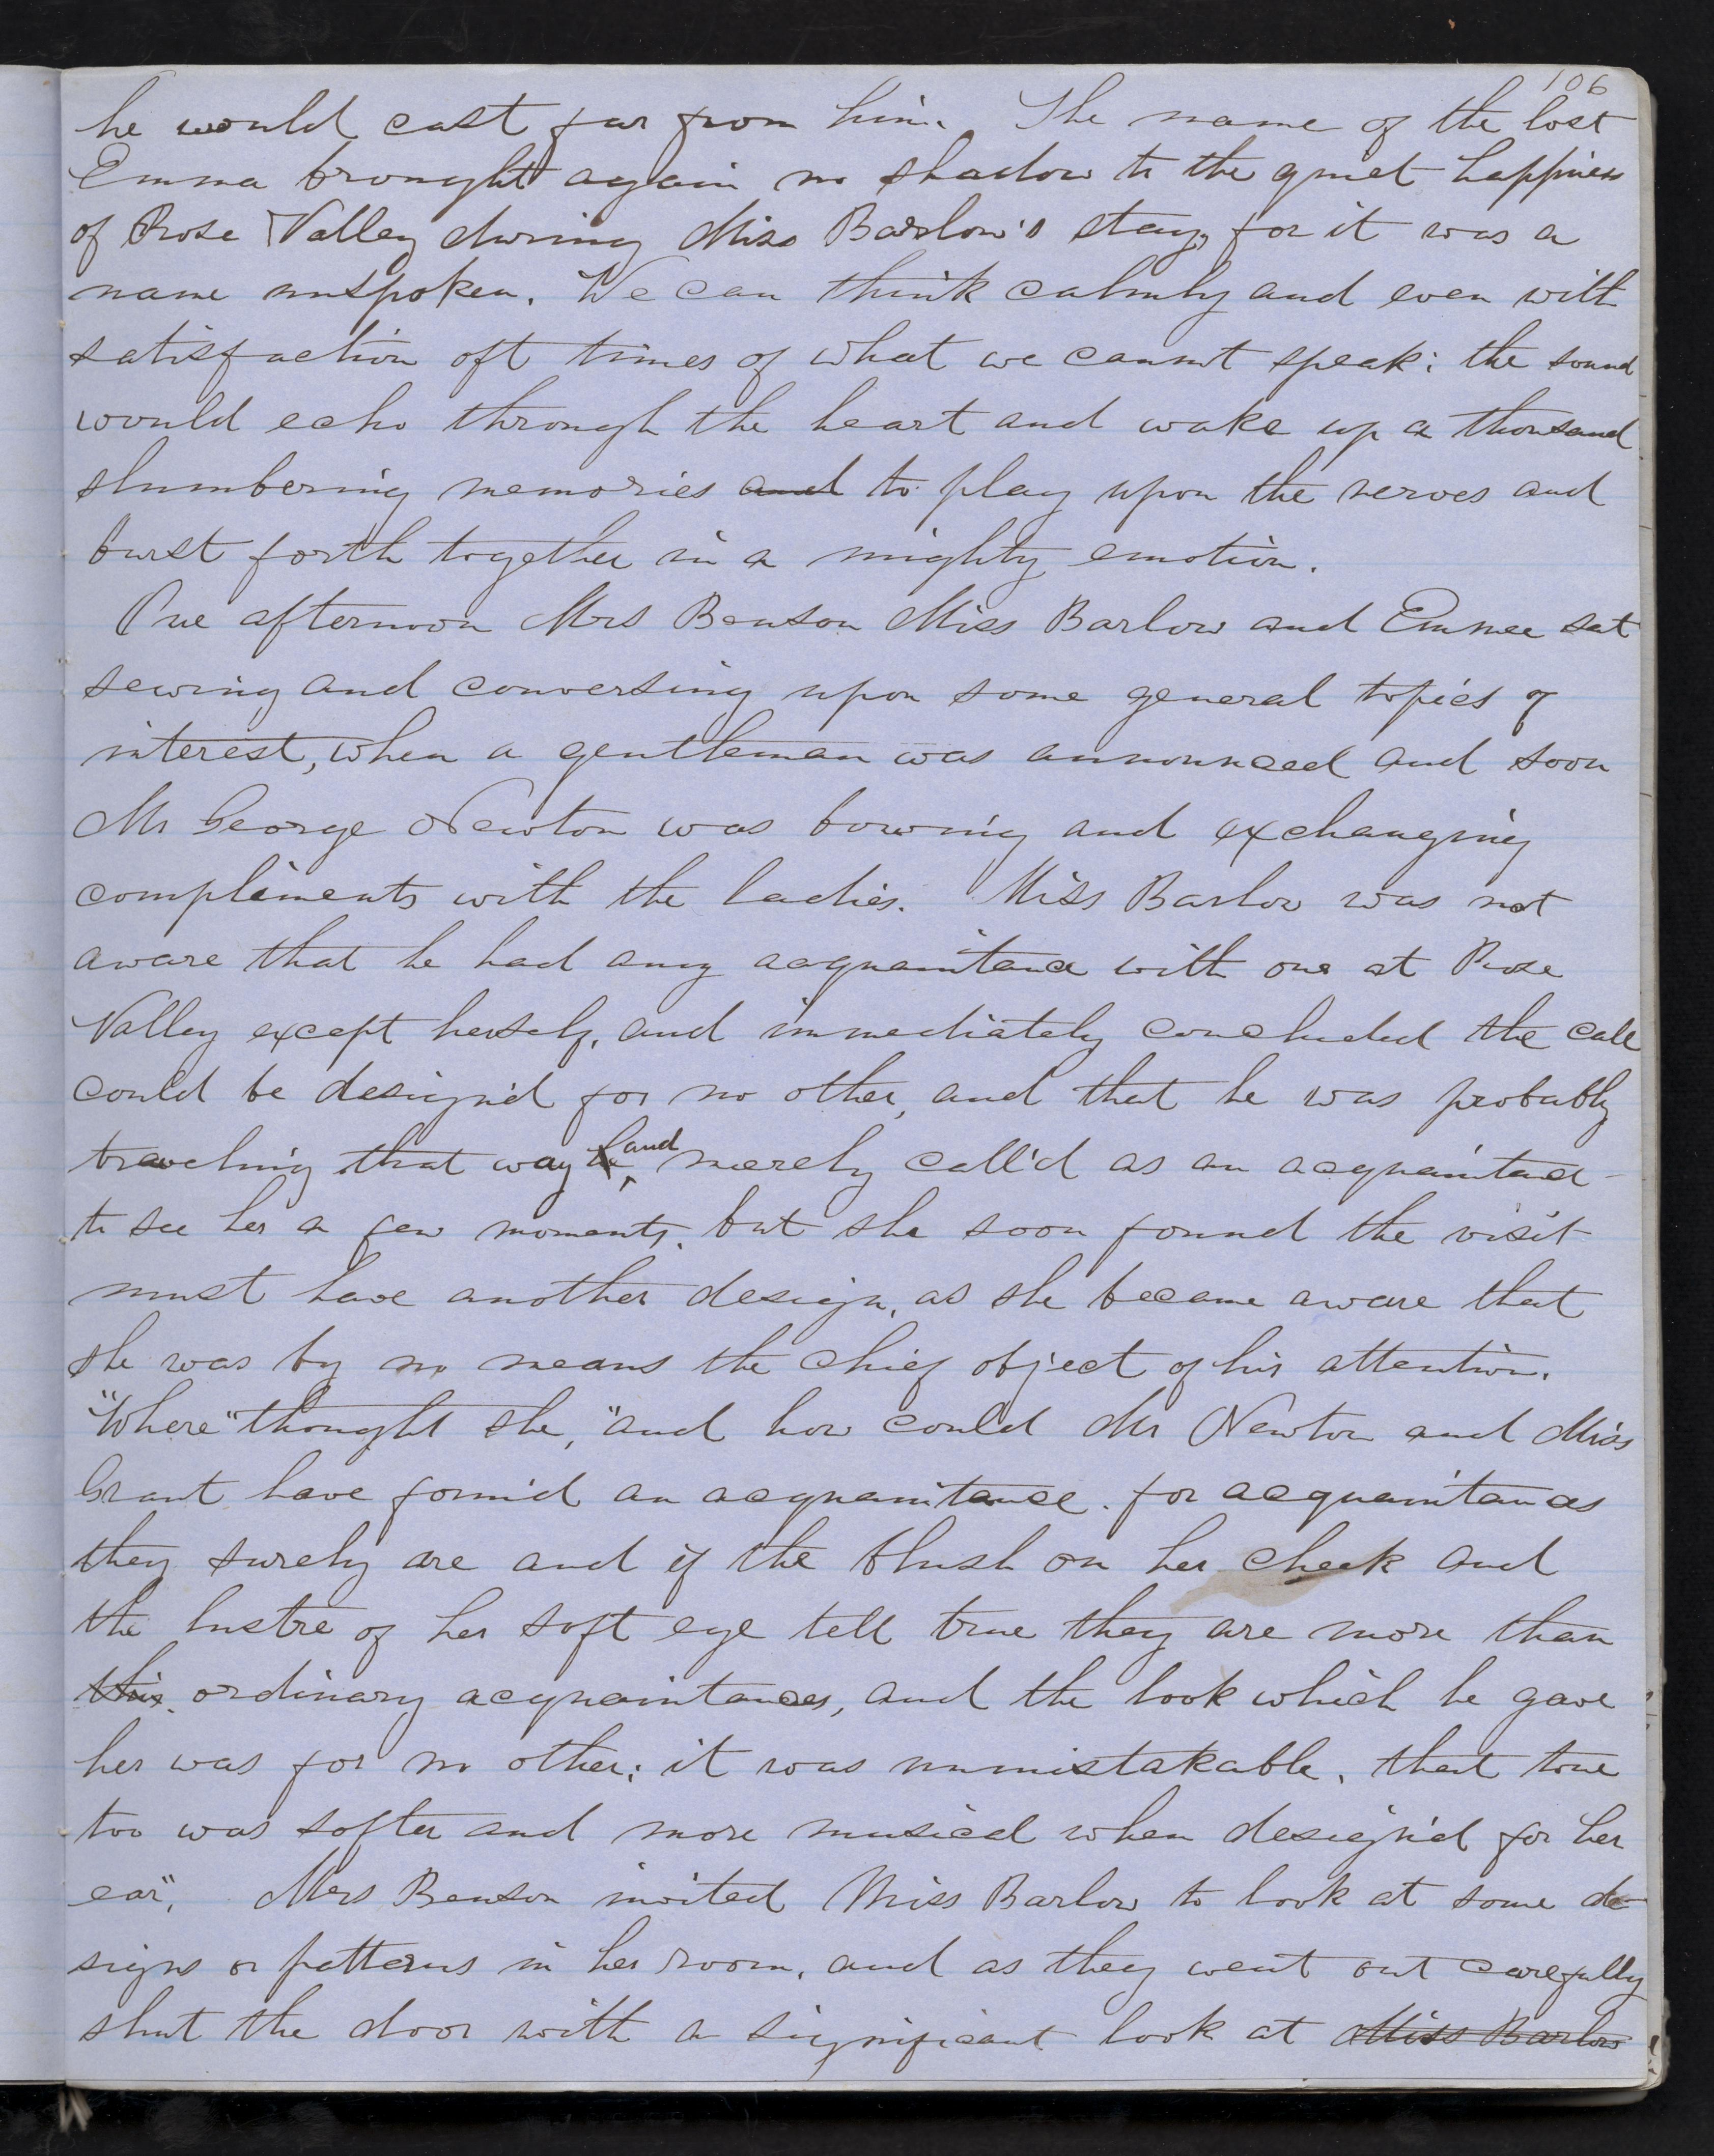 106
he would cast far from him. The name of the lost
Emma brought again no shadow to the quiet happiness
of Rose Valley during Miss Barlow's stay, for it was a
name unspoken. We can think calmly and even with
satisfaction oft times of what we cannot speak: the sound
would echo through the heart and wake up a thousand
slumbering memories and to play upon the nerves and
burst forth together in a mighty emotion.
One afternoon Mrs Benson Miss Barlow and Emma sat
sewing and conversing upon some general topics of
interest, when a gentleman was announced and soon
Mr George Newton was bowing and exchanging
compliments with the ladies. Miss Barlow was not
aware that he had any acquaintance with one at Rose
Valley except herself, and immediately concluded the call
could be design'd for no other, and that he was probably
traveling that way and merely call'd as an acquaintance
to see her a few moments, but she soon found the visit
must have another design, as she became aware that
she was by no means the chief object of his attention.
"Where" thought she, "and how could Mr Newton and Miss
Grant have form'd an acquaintance. for acquaintances
they surely are and if the blush on her cheek and
the lustre of her soft eye tell true they are more than
this ordinary acquaintances, and the look which he gave
her was for no other; it was unmistakable, that tone
too was softer and more musical when design'd for her
ear". Mrs Benson invited Miss Barlow to look at some de-
signs or patterns in her room, and as they went out carefully
shut the door with a significant look at Miss Barlow